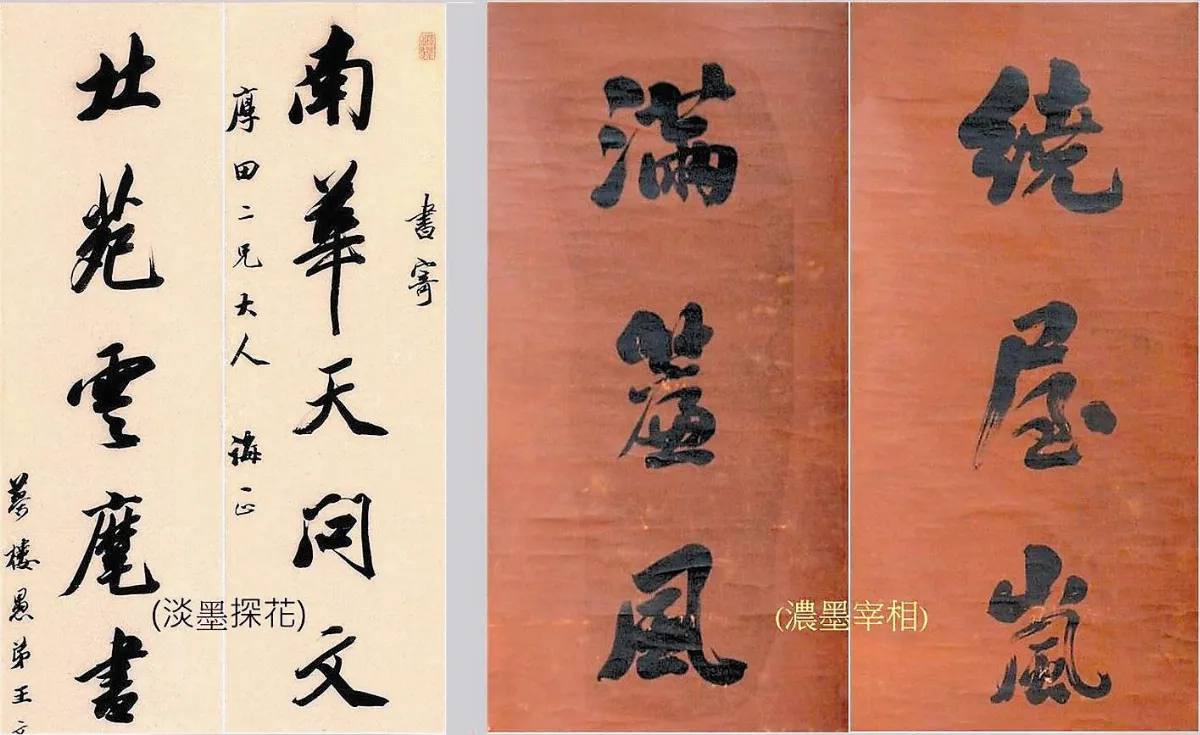 書寄
南華天問文
厚田二兄大人 誨正
北苑雲麾書
夢樓愚弟王
(淡墨探花)
繞屋嵐
滿簾風
(濃墨宰相)